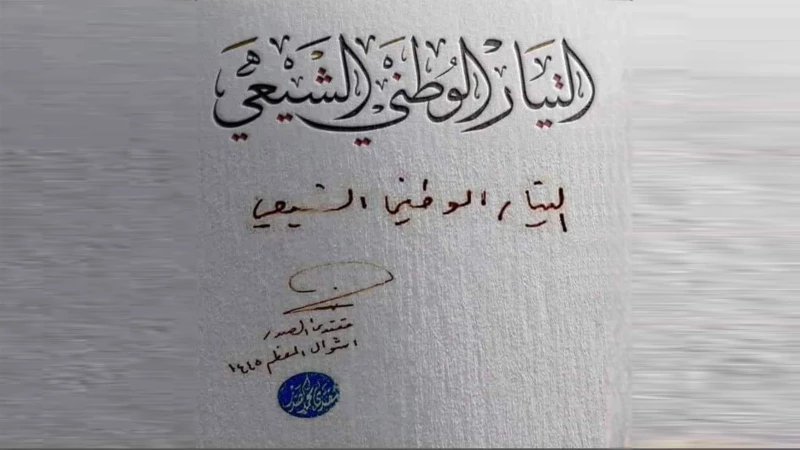 التيار الوطني الشيعي
التيار الوطني الشيعي
مقتدى الصدر
١ شوال المعظم ١٤٤٥